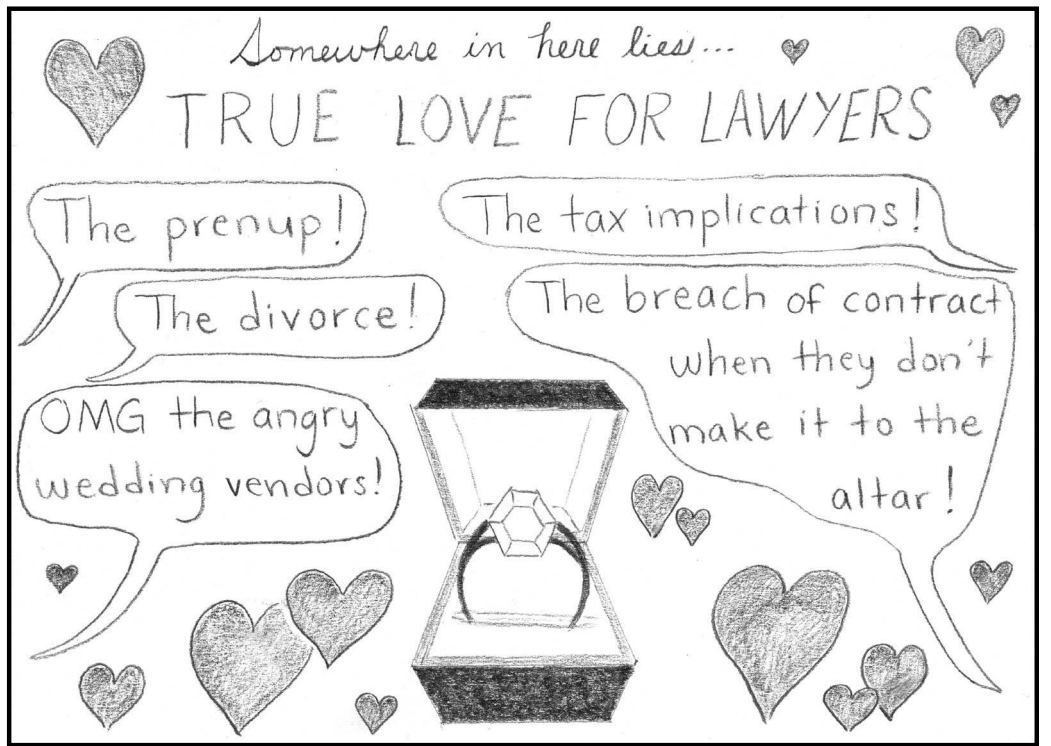 Somewhere in here lies...
TRUE LOVE FOR LAWYERS
The prenup!
The tax implications!
The divorce!
The breach of contract
when they don't
make it to the
altar!
OMG the angry
wedding vendors!